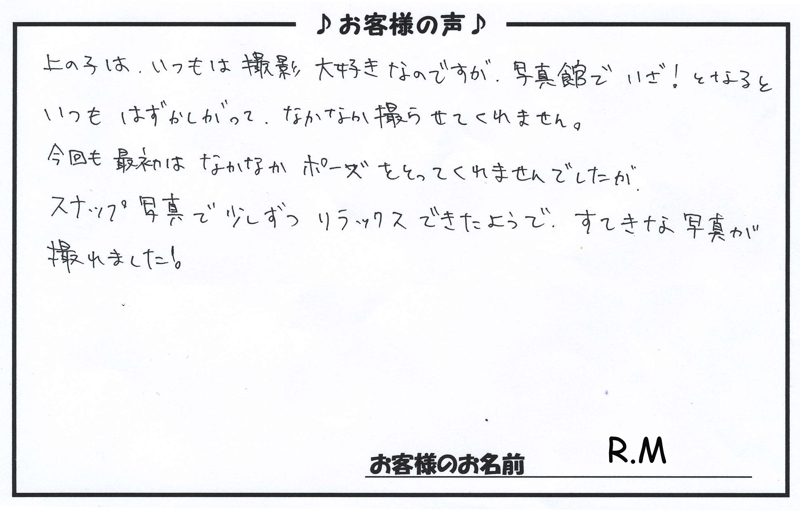 ♪お客様の声♪
上の子は、いつもは撮影大好きなのですが、写真館でいざ！となると
いつもはずかしがって、なかなか撮らせてくれません。
今回も最初はなかなかポーズをとってくれませんでしたが、
スナップ写真で少しずつリラックスできたようで、すてきな写真が
撮れました！
お客様のお名前 R.M